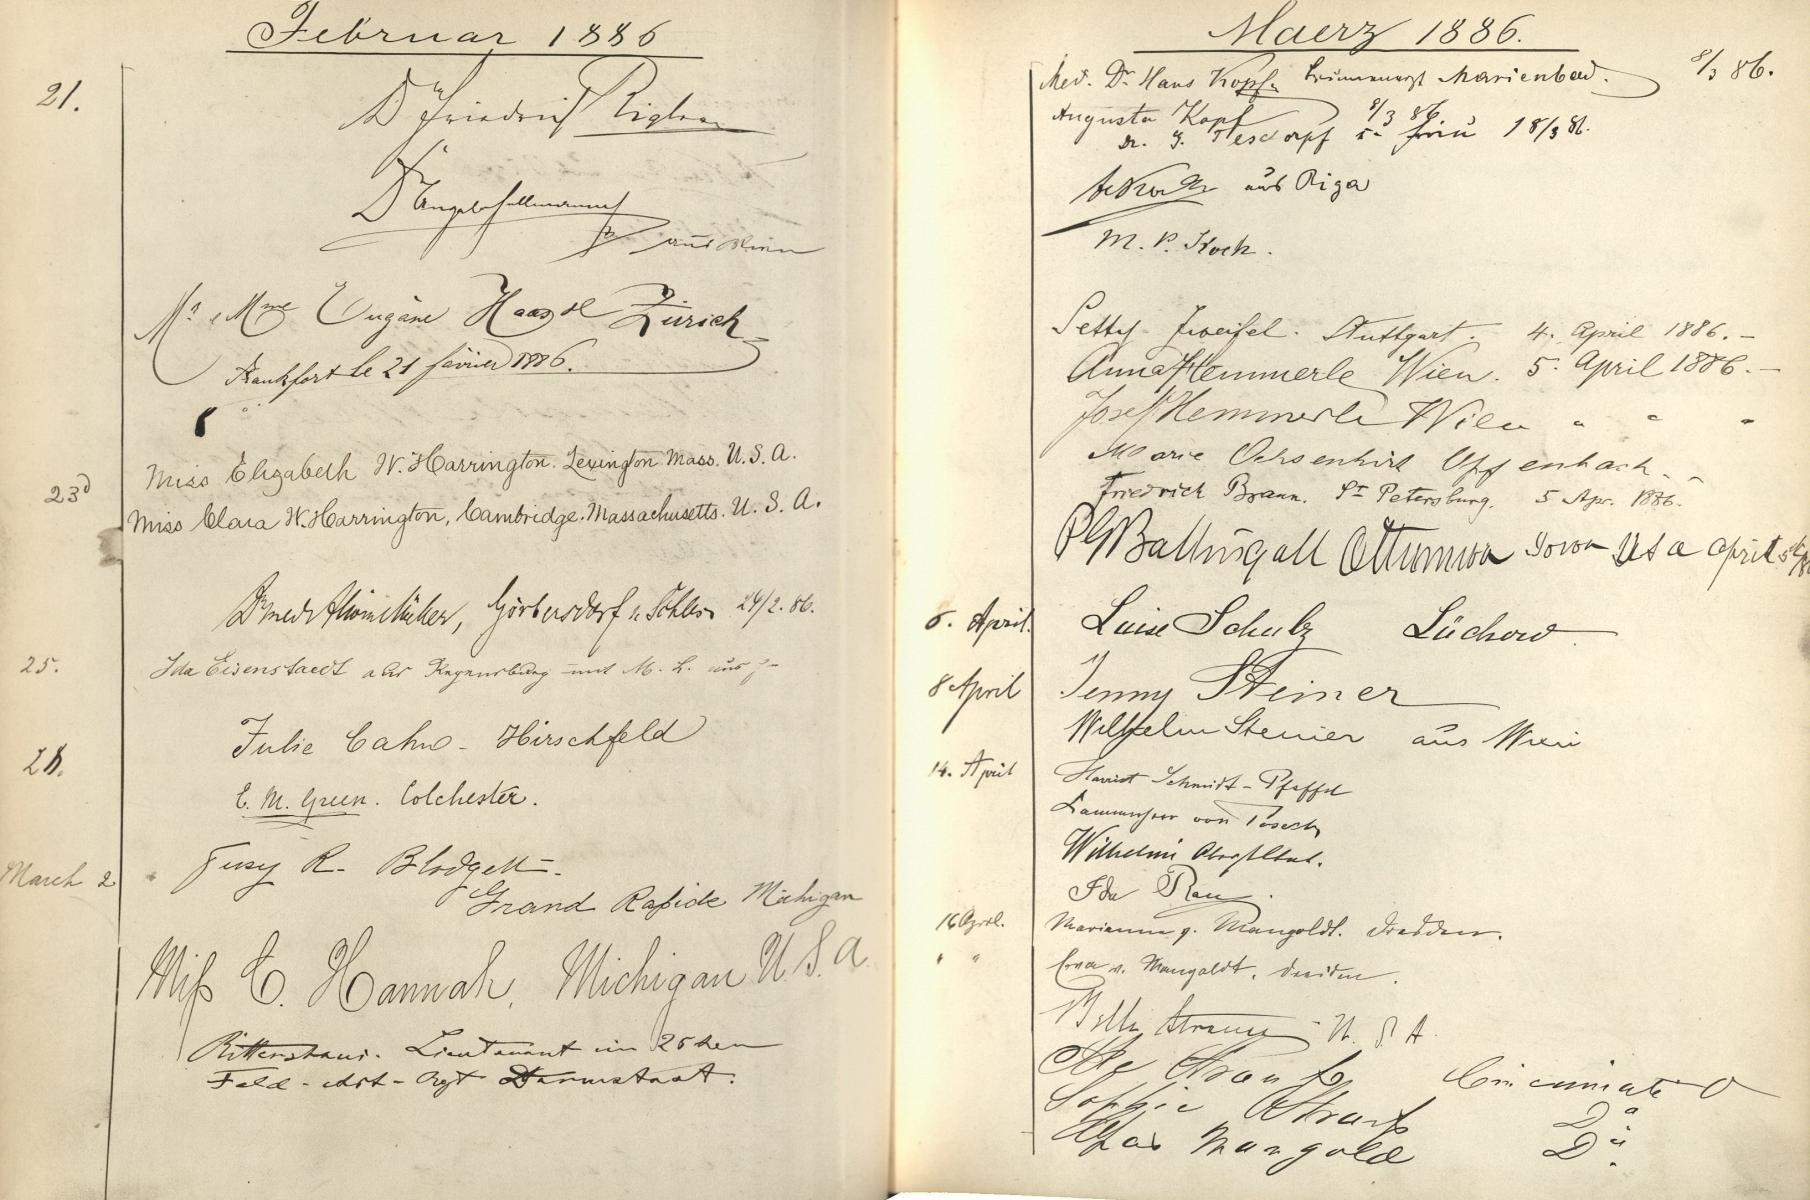 Februar 1886
21.
Dr Friedrich
Dr
aus
Mr & Mme Eugène Zürich
Frankfort le 21 février 1886.
Miss Elizabeth W. Harrington. Lexington Mass. U.S.A.
23d
Miss Clara W. Harrington, Cambridge. Massachusetts. U.S.A.
Dr med Görbersdorf i. Schles 24/2. 86.
25.
Ida Eisenstaedt aus mit M. L. aus
Julie Cahn - Hirschfeld
28.
E. M. Green. Colchester.
March 2
Susy R. Blodgett -
Grand Rapids Michigan
Miss C. Hannah, Michigan U.S.A.
Rittershaus. Lieutenant im 25ten
Feld-Art-Regt Darmstadt.
Maerz 1886.
Med. Dr Hans Kopf Marienbad. 8/3 86.
Augusta Kopf 8/3 86.
Dr. G. Tesdorpf u. Frau 18/3 86.
aus Riga
M. P. Koch.
Zweifel. Stuttgart. 4. April 1886.-
Anna Hemmerle Wien. 5. April 1886.-
Josef Hemmerle Wien " " "
Marie Ochsenhirt Offenbach -"-
Friedrich Braun. St Petersburg. 5 Apr. 1886.
P G Ballingall Ottumwa Iowa U S a april 5th/86
6. April.
Luise Schulz Lüchow.
8 April
Jenny Steiner
Wilhelm Steiner aus Wien
14. April
Harriet Schmidt-Pfaffel
von
Wilhelmi
Ida Rau.
16 April.
Marianne v. Mangoldt. Dresden.
" "
v. Mangoldt. Dresden.
Bella Strauss U. S. A.
Strauss Cincinnati O
Sophie Strauss Do
Max Mangold Do